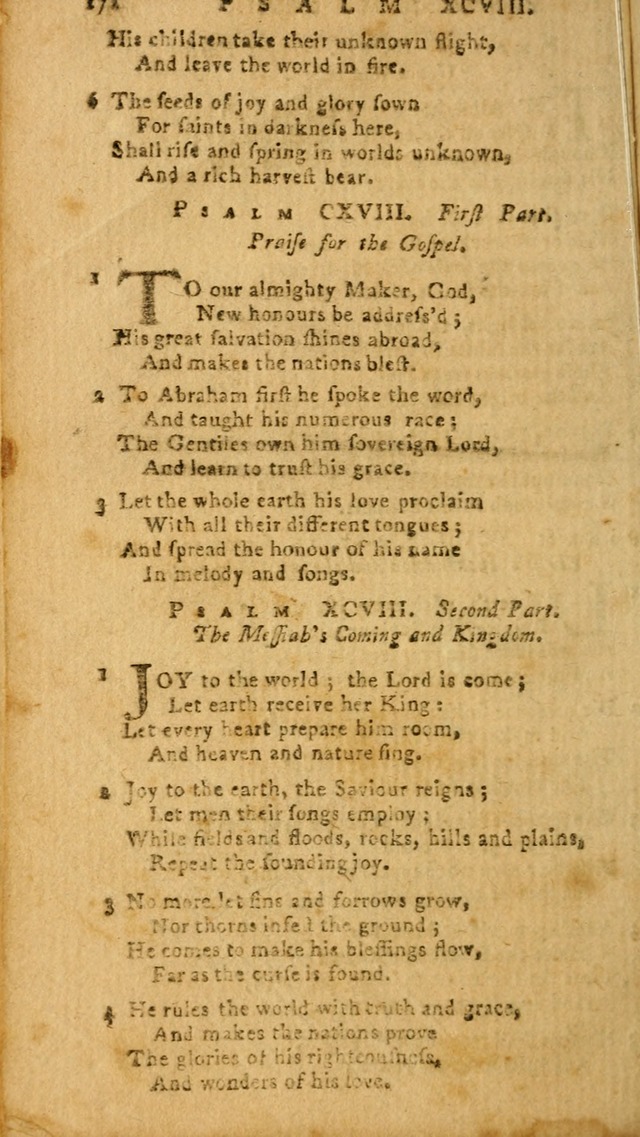 171 PSALM XCVIII.
His children take their unknown flight,
And leave the world in fire.
6 The ſeeds of joy and glory ſown
For ſaints in darkneſs here,
Shall riſe and ſpring in worlds unknown,
And a rich harveſt bear.
PSALM CXVIII. Firſt Part.
Praiſe for the Goſpel.
1 TO our almighty Maker, God,
New honours be addreſs'd ;
His great ſalvation ſhines abroad,
And makes the nations bleſt.
2 To Abraham firſt he ſpoke the word,
And taught his numerous race ;
The Gentiles own him ſovereign Lord,
And learn to truſt his grace.
3 Let the whole earth his love proclaim
With all their different tongues ;
And ſpread the honour of his name
In melody and ſongs.
PSALM XCVIII. Second Part.
The Meſſiah's Coming and Kingdom.
1 JOY to the world ; the Lord is come ;
Let earth receive her King :
Let every heart prepare him room,
And heaven and nature ſing.
2 Joy to the earth, the Saviour reigns ;
Let men their ſongs employ ;
While fields and floods, rocks, hills and plains,
Repeat the ſounding joy.
3 No more let ſins and ſorrows grow,
Nor thorns infeſt the ground ;
He comes to make his bleſſings flow,
Far as the curſe is found.
4 He rules the world with truth and grace,
And makes the nations prove
The glories of his righteouſneſs,
And wonders of his love.